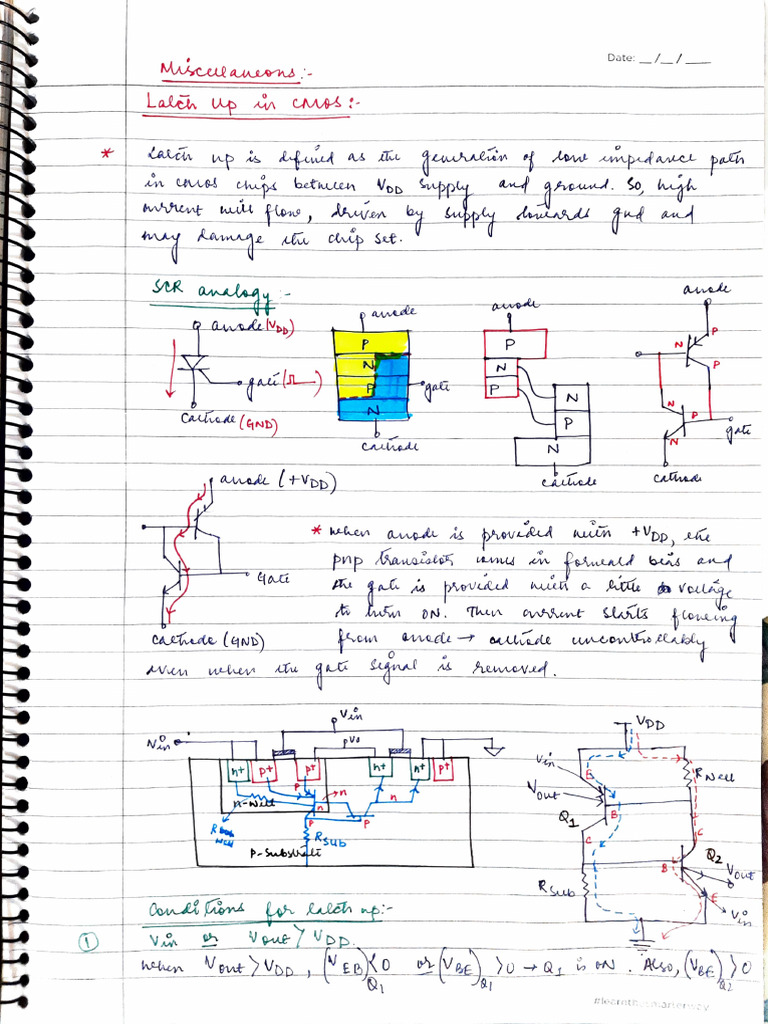 Date: __/__/____
Miscellaneous:-
Latch Up in CMOS:-
* Latch up is defined as the generation of low impedance path
in CMOS chips between VDD supply and ground. So, high
current will flow, driven by supply towards gnd and
may damage the chip set.
SCR analogy:-
anode (VDD)
gate
cathode (GND)
anode
P
N
P
N
gate
cathode
anode
P
N
P
N
P
N
cathode
anode
P
N
P
N
P
N
gate
cathode
anode (+VDD)
Gate
cathode (GND)
* When anode is provided with +VDD, the
pnp transistor comes in forward bias and
the gate is provided with a little voltage
to turn ON. Then current starts flowing
from anode → cathode uncontrollably
even when the gate signal is removed.
Vin
Vin
Vo
n+
p+
p+
n+
n+
p+
n-Well
P
n
n
n
P
P
R
well
Rsub
P-Substrate
VDD
Vin
Vout
E
B
C
Q1
RWell
C
B
Q2
E
Vout
Vin
Rsub
Conditions for latch up:-
① Vin or Vout > VDD.
When Vout > VDD, (VEB)Q1 < 0 or (VBE)Q1 > 0 → Q1 is ON. Also, (VBE)Q2 > 0